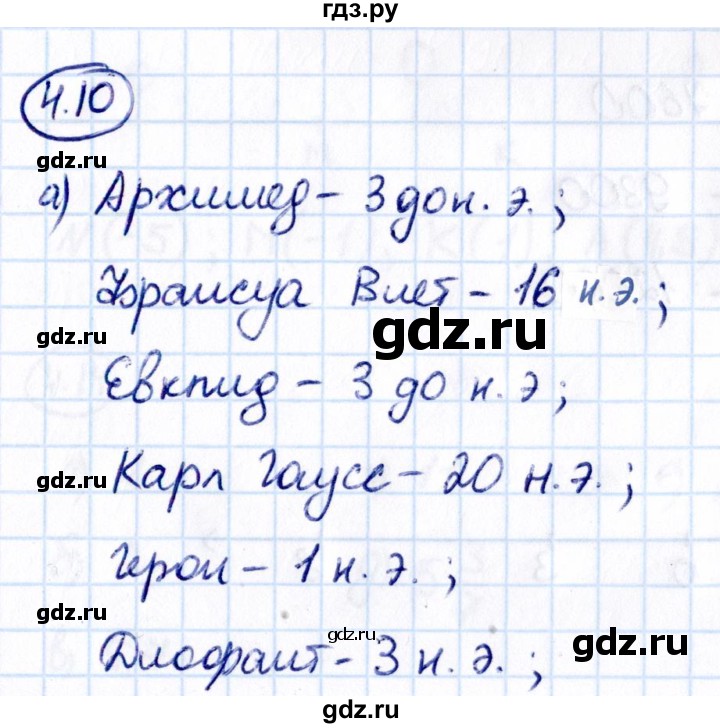 гдз.ру
4.10
gdz.ru
а) Архимед - 3 до н. э. ;
Франсуа Виет - 16 н. э. ;
gdz.ru
gdz.ru
Евклид - 3 до н. э ;
gdz.ru
Карл Гаусс - 20 н. э. ;
Герон - 1 н. э. ;
gdz.ru
gdz.ru
gdz.ru
Диофант - 3 н. э. ;
gdz.ru